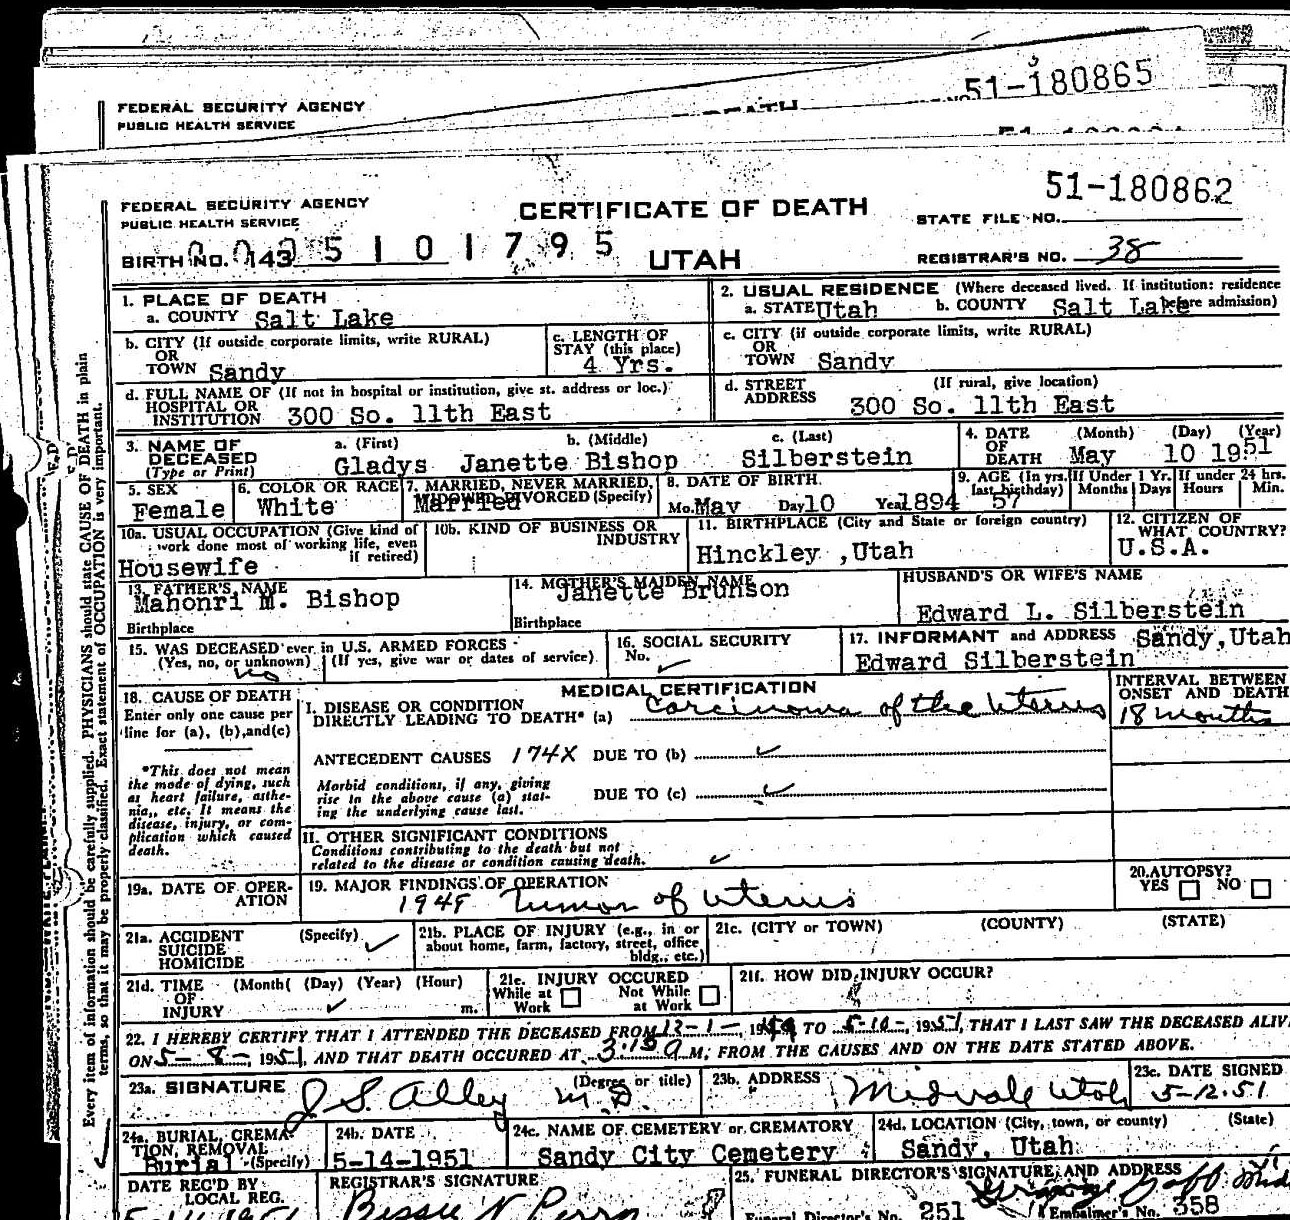 51-180865
FEDERAL SECURITY AGENCY
PUBLIC HEALTH SERVICE
51-180862
FEDERAL SECURITY AGENCY
PUBLIC HEALTH SERVICE
CERTIFICATE OF DEATH
STATE FILE NO.
BIRTH NO. 143 5101795
UTAH
REGISTRAR'S NO. 38
1. PLACE OF DEATH
a. COUNTY Salt Lake
2. USUAL RESIDENCE (Where deceased lived. If institution: residence before admission)
a. STATE Utah b. COUNTY Salt Lake
b. CITY (If outside corporate limits, write RURAL)
OR
TOWN Sandy
c. LENGTH OF
STAY (this place)
4 Yrs.
c. CITY (if outside corporate limits, write RURAL)
OR
TOWN Sandy
d. FULL NAME OF (If not in hospital or institution, give st. address or loc.)
HOSPITAL OR
INSTITUTION 300 So. 11th East
d. STREET (If rural, give location)
ADDRESS 300 So. 11th East
3. NAME OF
DECEASED
(Type or Print)
a. (First) b. (Middle) c. (Last)
Gladys Janette Bishop Silberstein
4. DATE (Month) (Day) (Year)
OF
DEATH May 10 1951
5. SEX
Female
6. COLOR OR RACE
White
7. MARRIED, NEVER MARRIED,
WIDOWED, DIVORCED (Specify)
Married
8. DATE OF BIRTH
Mo. May Day 10 Year 1894
9. AGE (In yrs. last birthday)
57
If Under 1 Yr.
Months Days
If under 24 hrs.
Hours Min.
10a. USUAL OCCUPATION (Give kind of
work done most of working life, even
if retired)
Housewife
10b. KIND OF BUSINESS OR
INDUSTRY
11. BIRTHPLACE (City and State or foreign country)
Hinckley ,Utah
12. CITIZEN OF
WHAT COUNTRY?
U.S.A.
13. FATHER'S NAME
Mahonri M. Bishop
Birthplace
14. MOTHER'S MAIDEN NAME
Janette Brunson
Birthplace
HUSBAND'S OR WIFE'S NAME
Edward L. Silberstein
15. WAS DECEASED ever in U.S. ARMED FORCES
(Yes, no, or unknown) (If yes, give war or dates of service)
no
16. SOCIAL SECURITY
No.
17. INFORMANT and ADDRESS Sandy, Utah
Edward Silberstein
18. CAUSE OF DEATH
Enter only one cause per
line for (a), (b), and(c)
*This does not mean
the mode of dying, such
as heart failure, asthe-
nia,, etc. It means the
disease, injury, or com-
plication which caused
death.
MEDICAL CERTIFICATION
I. DISEASE OR CONDITION
DIRECTLY LEADING TO DEATH* (a) Carcinoma of the Uterus
INTERVAL BETWEEN
ONSET AND DEATH
18 months
ANTECEDENT CAUSES 174X DUE TO (b)
Morbid conditions, if any, giving
rise to the above cause (a) stat-
ing the underlying cause last.
DUE TO (c)
II. OTHER SIGNIFICANT CONDITIONS
Conditions contributing to the death but not
related to the disease or condition causing death.
19a. DATE OF OPER-
ATION
19. MAJOR FINDINGS OF OPERATION
1949 Tumor of uterus
20. AUTOPSY?
YES NO
21a. ACCIDENT (Specify)
SUICIDE
HOMICIDE
21b. PLACE OF INJURY (e.g., in or
about home, farm, factory, street, office
bldg., etc.)
21c. (CITY or TOWN) (COUNTY) (STATE)
21d. TIME (Month( (Day) (Year) (Hour)
OF
INJURY m.
21e. INJURY OCCURED
While at Work Not While at Work
21f. HOW DID INJURY OCCUR?
22. I HEREBY CERTIFY THAT I ATTENDED THE DECEASED FROM 12-1-, 1949 TO 5-10-, 1951, THAT I LAST SAW THE DECEASED ALIVE
ON 5-8-, 1951, AND THAT DEATH OCCURED AT 3:15 a M; FROM THE CAUSES AND ON THE DATE STATED ABOVE.
23a. SIGNATURE (Degree or title)
J. S. Alley M.D.
23b. ADDRESS
Midvale Utah
23c. DATE SIGNED
5-12-51
24a. BURIAL, CREMA-
TION, REMOVAL
(Specify)
Burial
24b. DATE
5-14-1951
24c. NAME OF CEMETERY or CREMATORY
Sandy City Cemetery
24d. LOCATION (City, town, or county) (State)
Sandy, Utah
DATE REC'D BY
LOCAL REG.
REGISTRAR'S SIGNATURE
25. FUNERAL DIRECTOR'S SIGNATURE AND ADDRESS
Funeral Director's No. 251 Embalmer's No. 358
Every item of information should be carefully supplied. PHYSICIANS should state CAUSE OF DEATH in plain
terms, so that it may be properly classified. Exact statement of OCCUPATION is very important.